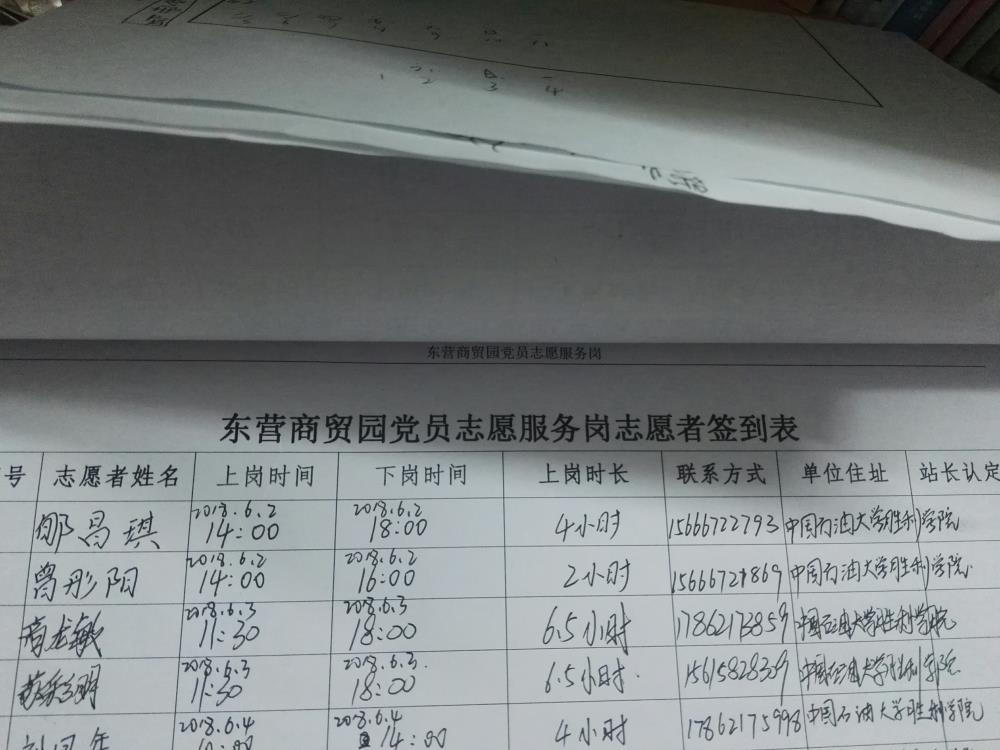 东营商贸园党员志愿服务岗
东营商贸园党员志愿服务岗志愿者签到表
号 志愿者姓名 上岗时间 下岗时间 上岗时长 联系方式 单位住址 站长认定
邹昌琪 2018.6.2 14:00 2018.6.2 18:00 4小时 15666722793 中国石油大学胜利学院
曾彤阳 2018.6.2 14:00 2018.6.2 16:00 2小时 中国石油大学胜利学院
2018.6.3 11:30 2018.6.3 18:00 6.5小时 17862173859 中国石油大学胜利学院
2018.6.3 11:30 2018.6.3. 18:00 6.5小时. 中国石油大学胜利学院
2018.6.4 2018.6.4 14:00 4小时 17862175998 中国石油大学胜利学院